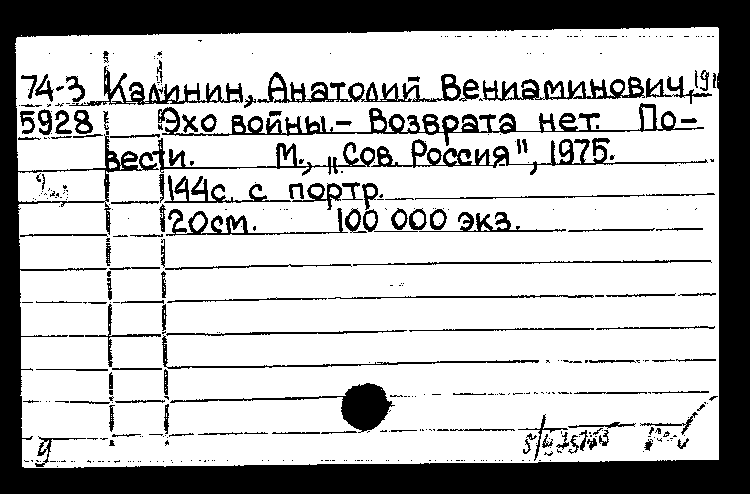 74-3 Калинин, Анатолий Вениаминович,
5928 Эхо войны.- Возврата нет. По-
вести. М., „Сов. Россия", 1975.
144с. с портр.
20см. 100 000 экз.